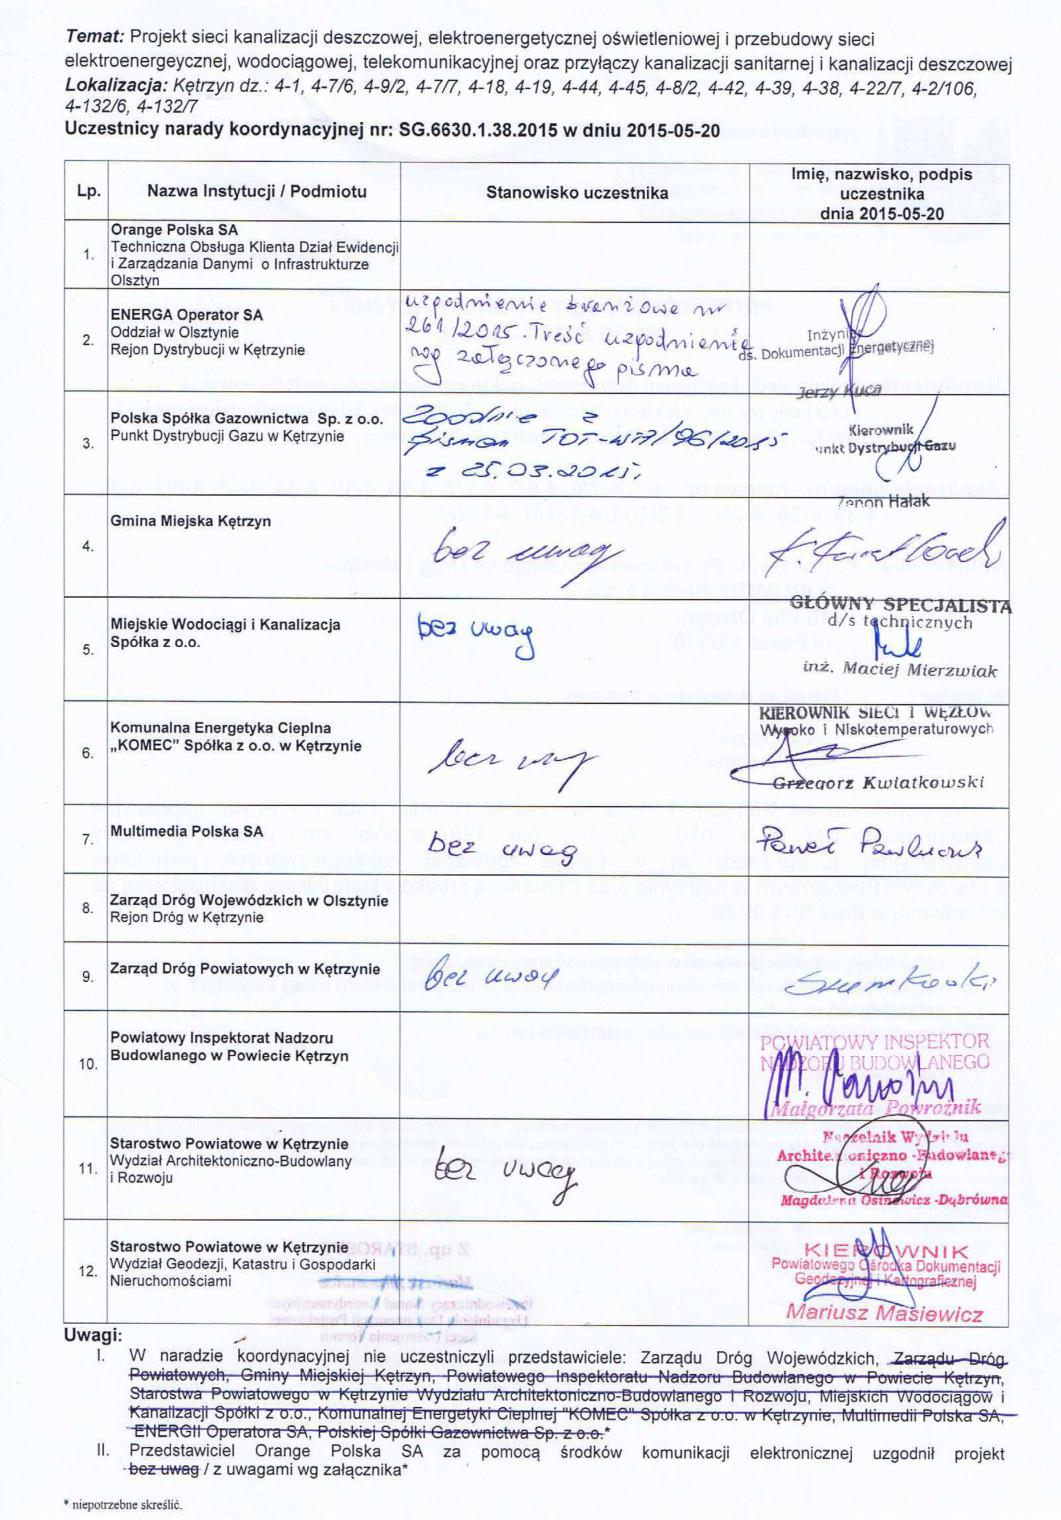 Temat: Projekt sieci kanalizacji deszczowej, elektroenergetycznej oświetleniowej i przebudowy sieci
elektroenergeycznej, wodociągowej, telekomunikacyjnej oraz przyłączy kanalizacji sanitarnej i kanalizacji deszczowej
Lokalizacja: Kętrzyn dz.: 4-1, 4-7/6, 4-9/2, 4-7/7, 4-18, 4-19, 4-44, 4-45, 4-8/2, 4-42, 4-39, 4-38, 4-22/7, 4-2/106,
4-132/6, 4-132/7
Uczestnicy narady koordynacyjnej nr: SG.6630.1.38.2015 w dniu 2015-05-20
Lp. Nazwa Instytucji / Podmiotu Stanowisko uczestnika Imię, nazwisko, podpis
uczestnika
dnia 2015-05-20
1. Orange Polska SA
Techniczna Obsługa Klienta Dział Ewidencji
i Zarządzania Danymi o Infrastrukturze
Olsztyn
2. ENERGA Operator SA
Oddział w Olsztynie
Rejon Dystrybucji w Kętrzynie
uzgodnienie branżowe nr
261/2015. Treść uzgodnienie
wg załączonego pisma
Inżynier
ds. Dokumentacji Energetycznej
Jerzy Kuca
3. Polska Spółka Gazownictwa Sp. z o.o.
Punkt Dystrybucji Gazu w Kętrzynie
zgodnie z
pismem TOT-WA/96/2015
z 25.03.2015.
Kierownik
unkt Dystrybucji Gazu
Zenon Hałak
4. Gmina Miejska Kętrzyn
bez uwag
5. Miejskie Wodociągi i Kanalizacja
Spółka z o.o.
bez uwag
GŁÓWNY SPECJALISTA
d/s technicznych
inż. Maciej Mierzwiak
6. Komunalna Energetyka Cieplna
„KOMEC” Spółka z o.o. w Kętrzynie
bez uwag
KIEROWNIK SIECI I WĘZŁÓW
Wysoko i Niskotemperaturowych
Grzegorz Kwiatkowski
7. Multimedia Polska SA
bez uwag
Paweł
8. Zarząd Dróg Wojewódzkich w Olsztynie
Rejon Dróg w Kętrzynie
9. Zarząd Dróg Powiatowych w Kętrzynie
bez uwag
10. Powiatowy Inspektorat Nadzoru
Budowlanego w Powiecie Kętrzyn
POWIATOWY INSPEKTOR
NADZORU BUDOWLANEGO
Małgorzata Powroźnik
11. Starostwo Powiatowe w Kętrzynie
Wydział Architektoniczno-Budowlany
i Rozwoju
bez uwag
Naczelnik Wydziału
Architektoniczno-Budowlaneg
i Rozwoju
Magdalena Osinowicz-Dąbrówna
12. Starostwo Powiatowe w Kętrzynie
Wydział Geodezji, Katastru i Gospodarki
Nieruchomościami
KIEROWNIK
Powiatowego Ośrodka Dokumentacji
Geodezyjnej i Kartograficznej
Mariusz Masiewicz
Uwagi:
I. W naradzie koordynacyjnej nie uczestniczyli przedstawiciele: Zarządu Dróg Wojewódzkich, Zarządu Dróg
Powiatowych, Gminy Miejskiej Kętrzyn, Powiatowego Inspektoratu Nadzoru Budowlanego w Powiecie Kętrzyn,
Starostwa Powiatowego w Kętrzynie Wydziału Architektoniczno-Budowlanego i Rozwoju, Miejskich Wodociągów i
Kanalizacji Spółki z o.o., Komunalnej Energetyki Cieplnej "KOMEC" Spółka z o.o. w Kętrzynie, Multimedii Polska SA,
ENERGII Operatora SA, Polskiej Spółki Gazownictwa Sp. z o.o.*
II. Przedstawiciel Orange Polska SA za pomocą środków komunikacji elektronicznej uzgodnił projekt
bez uwag / z uwagami wg załącznika*
* niepotrzebne skreślić.